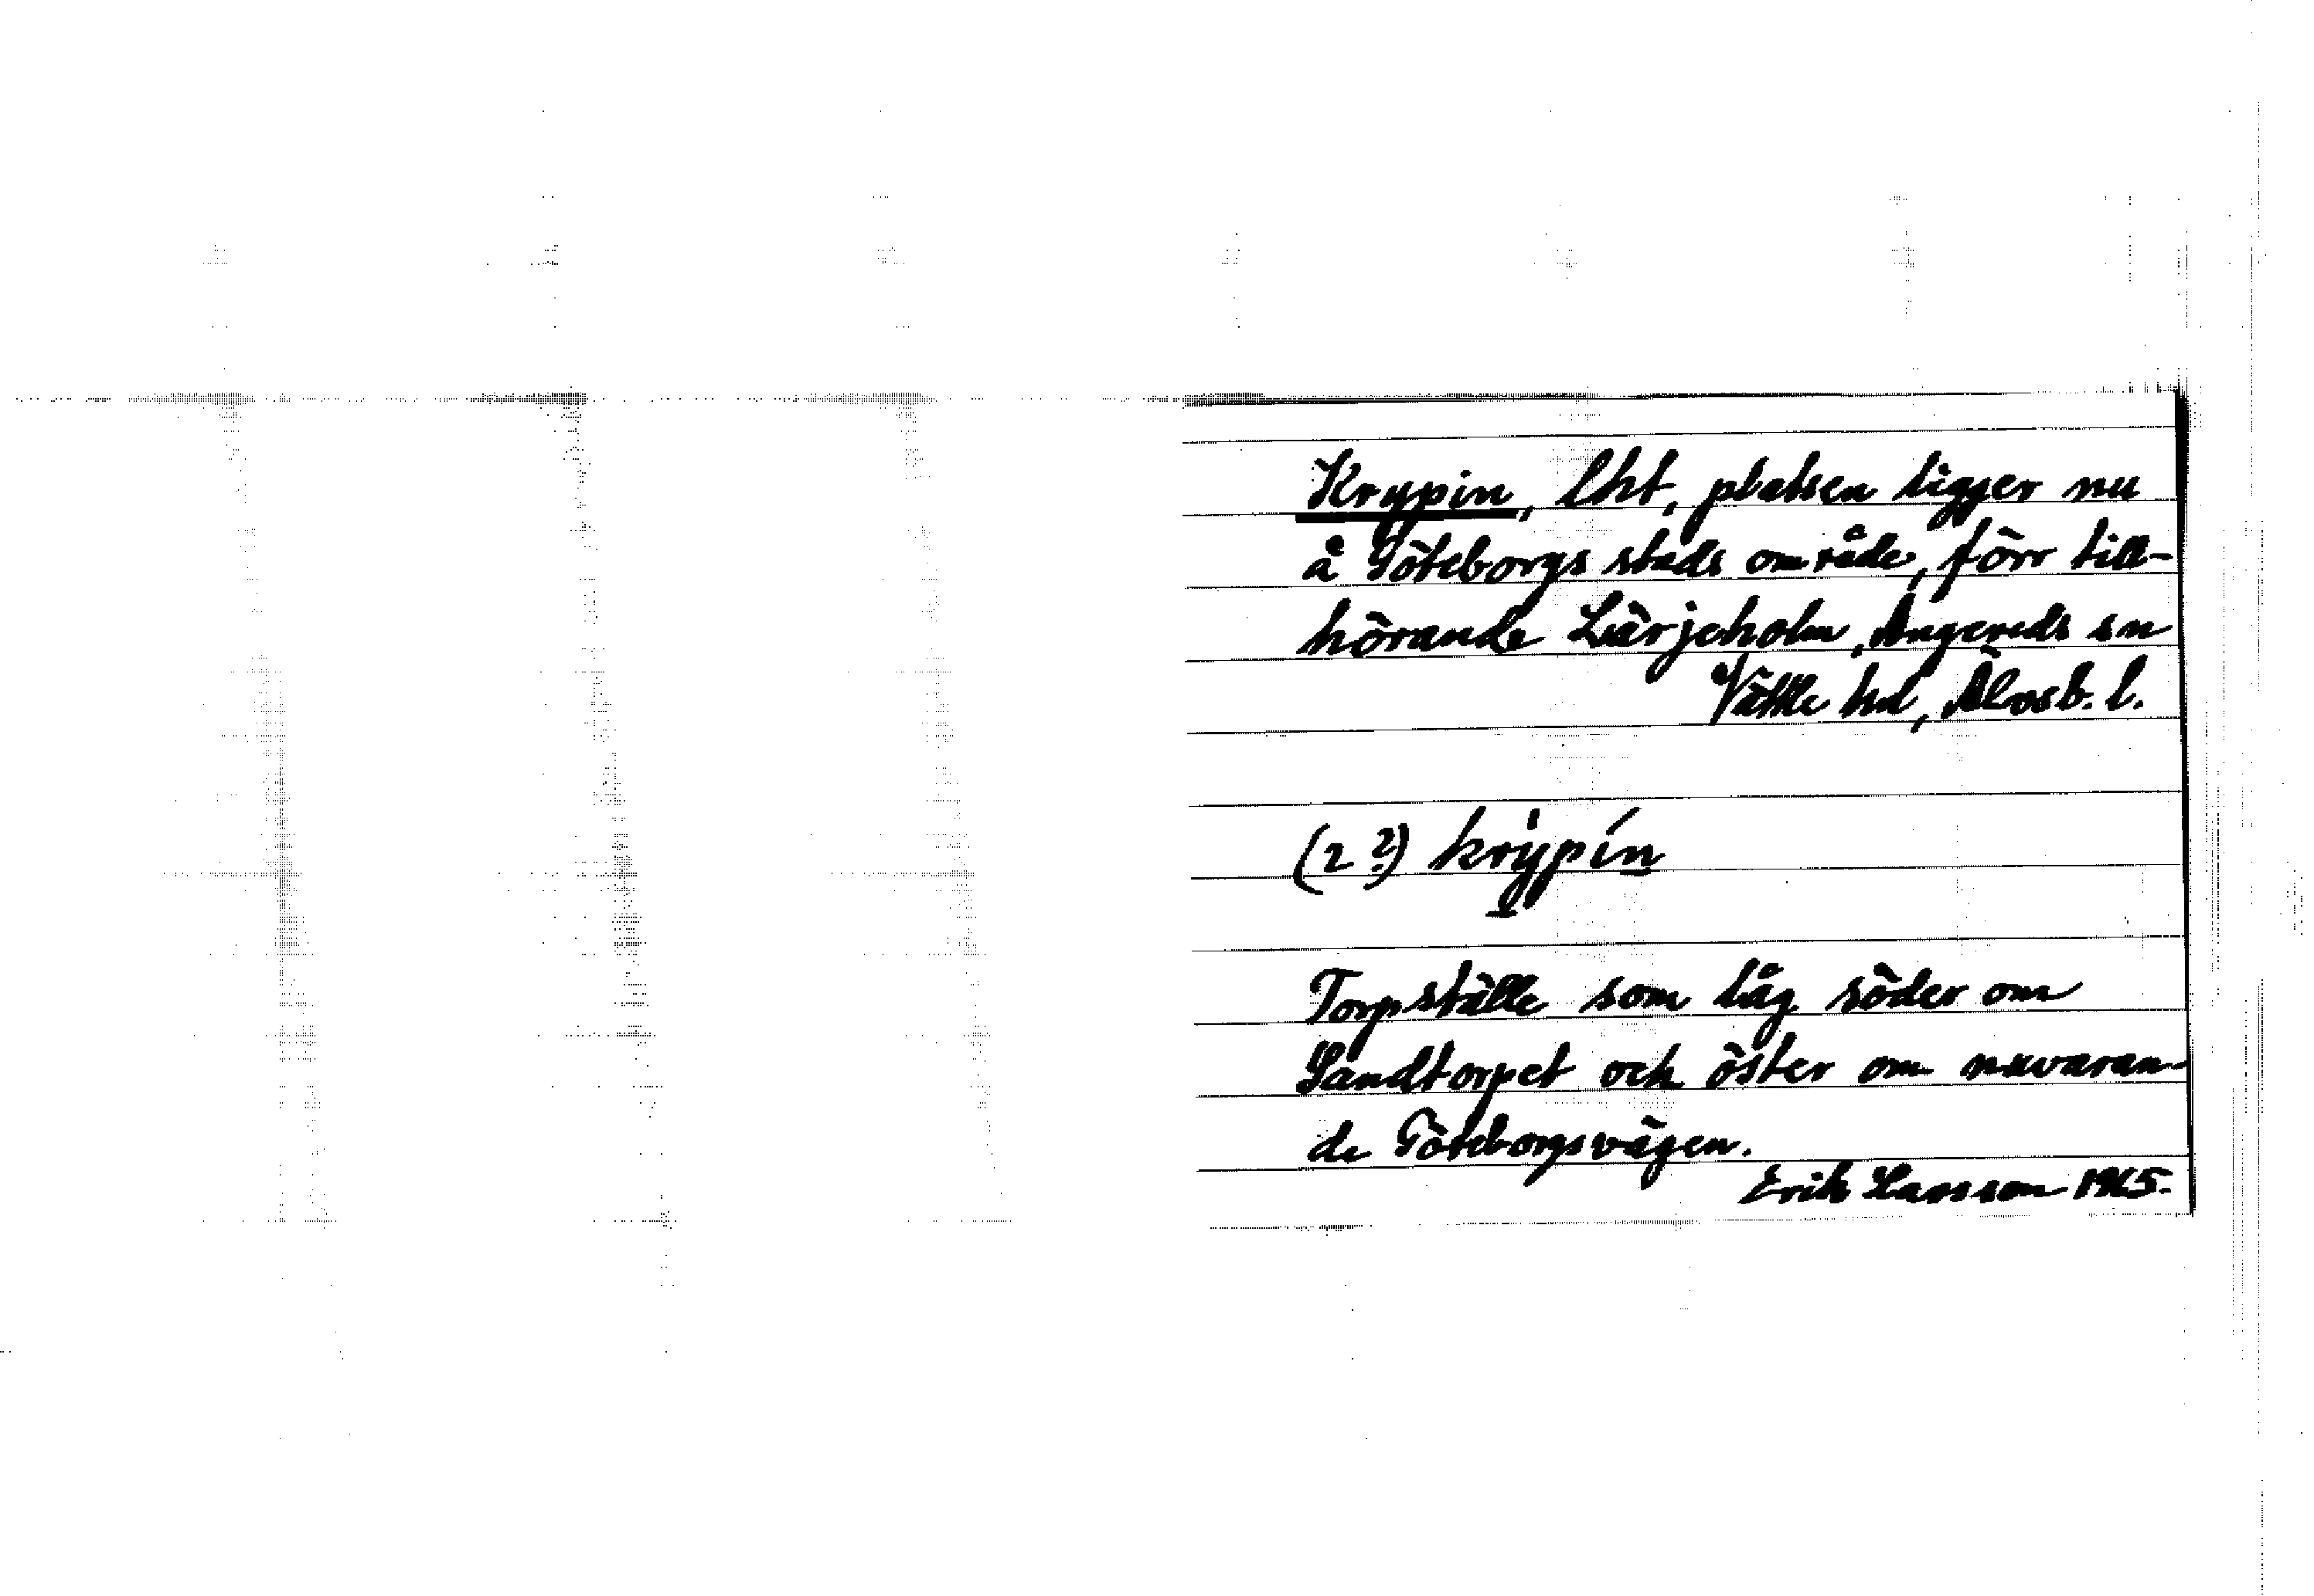 Krypin, lht, platsen ligger nu
å Göteborgs stads område, förr till-
hörande Lärjeholm, Angereds sn
Vättle hd, Älvsb. l.
(2 ?) krỳpín
Torpställe som låg söder om
Sandtorpet och öster om nuvaran-
de Göteborgsvägen.
Erik Hansson 1965.